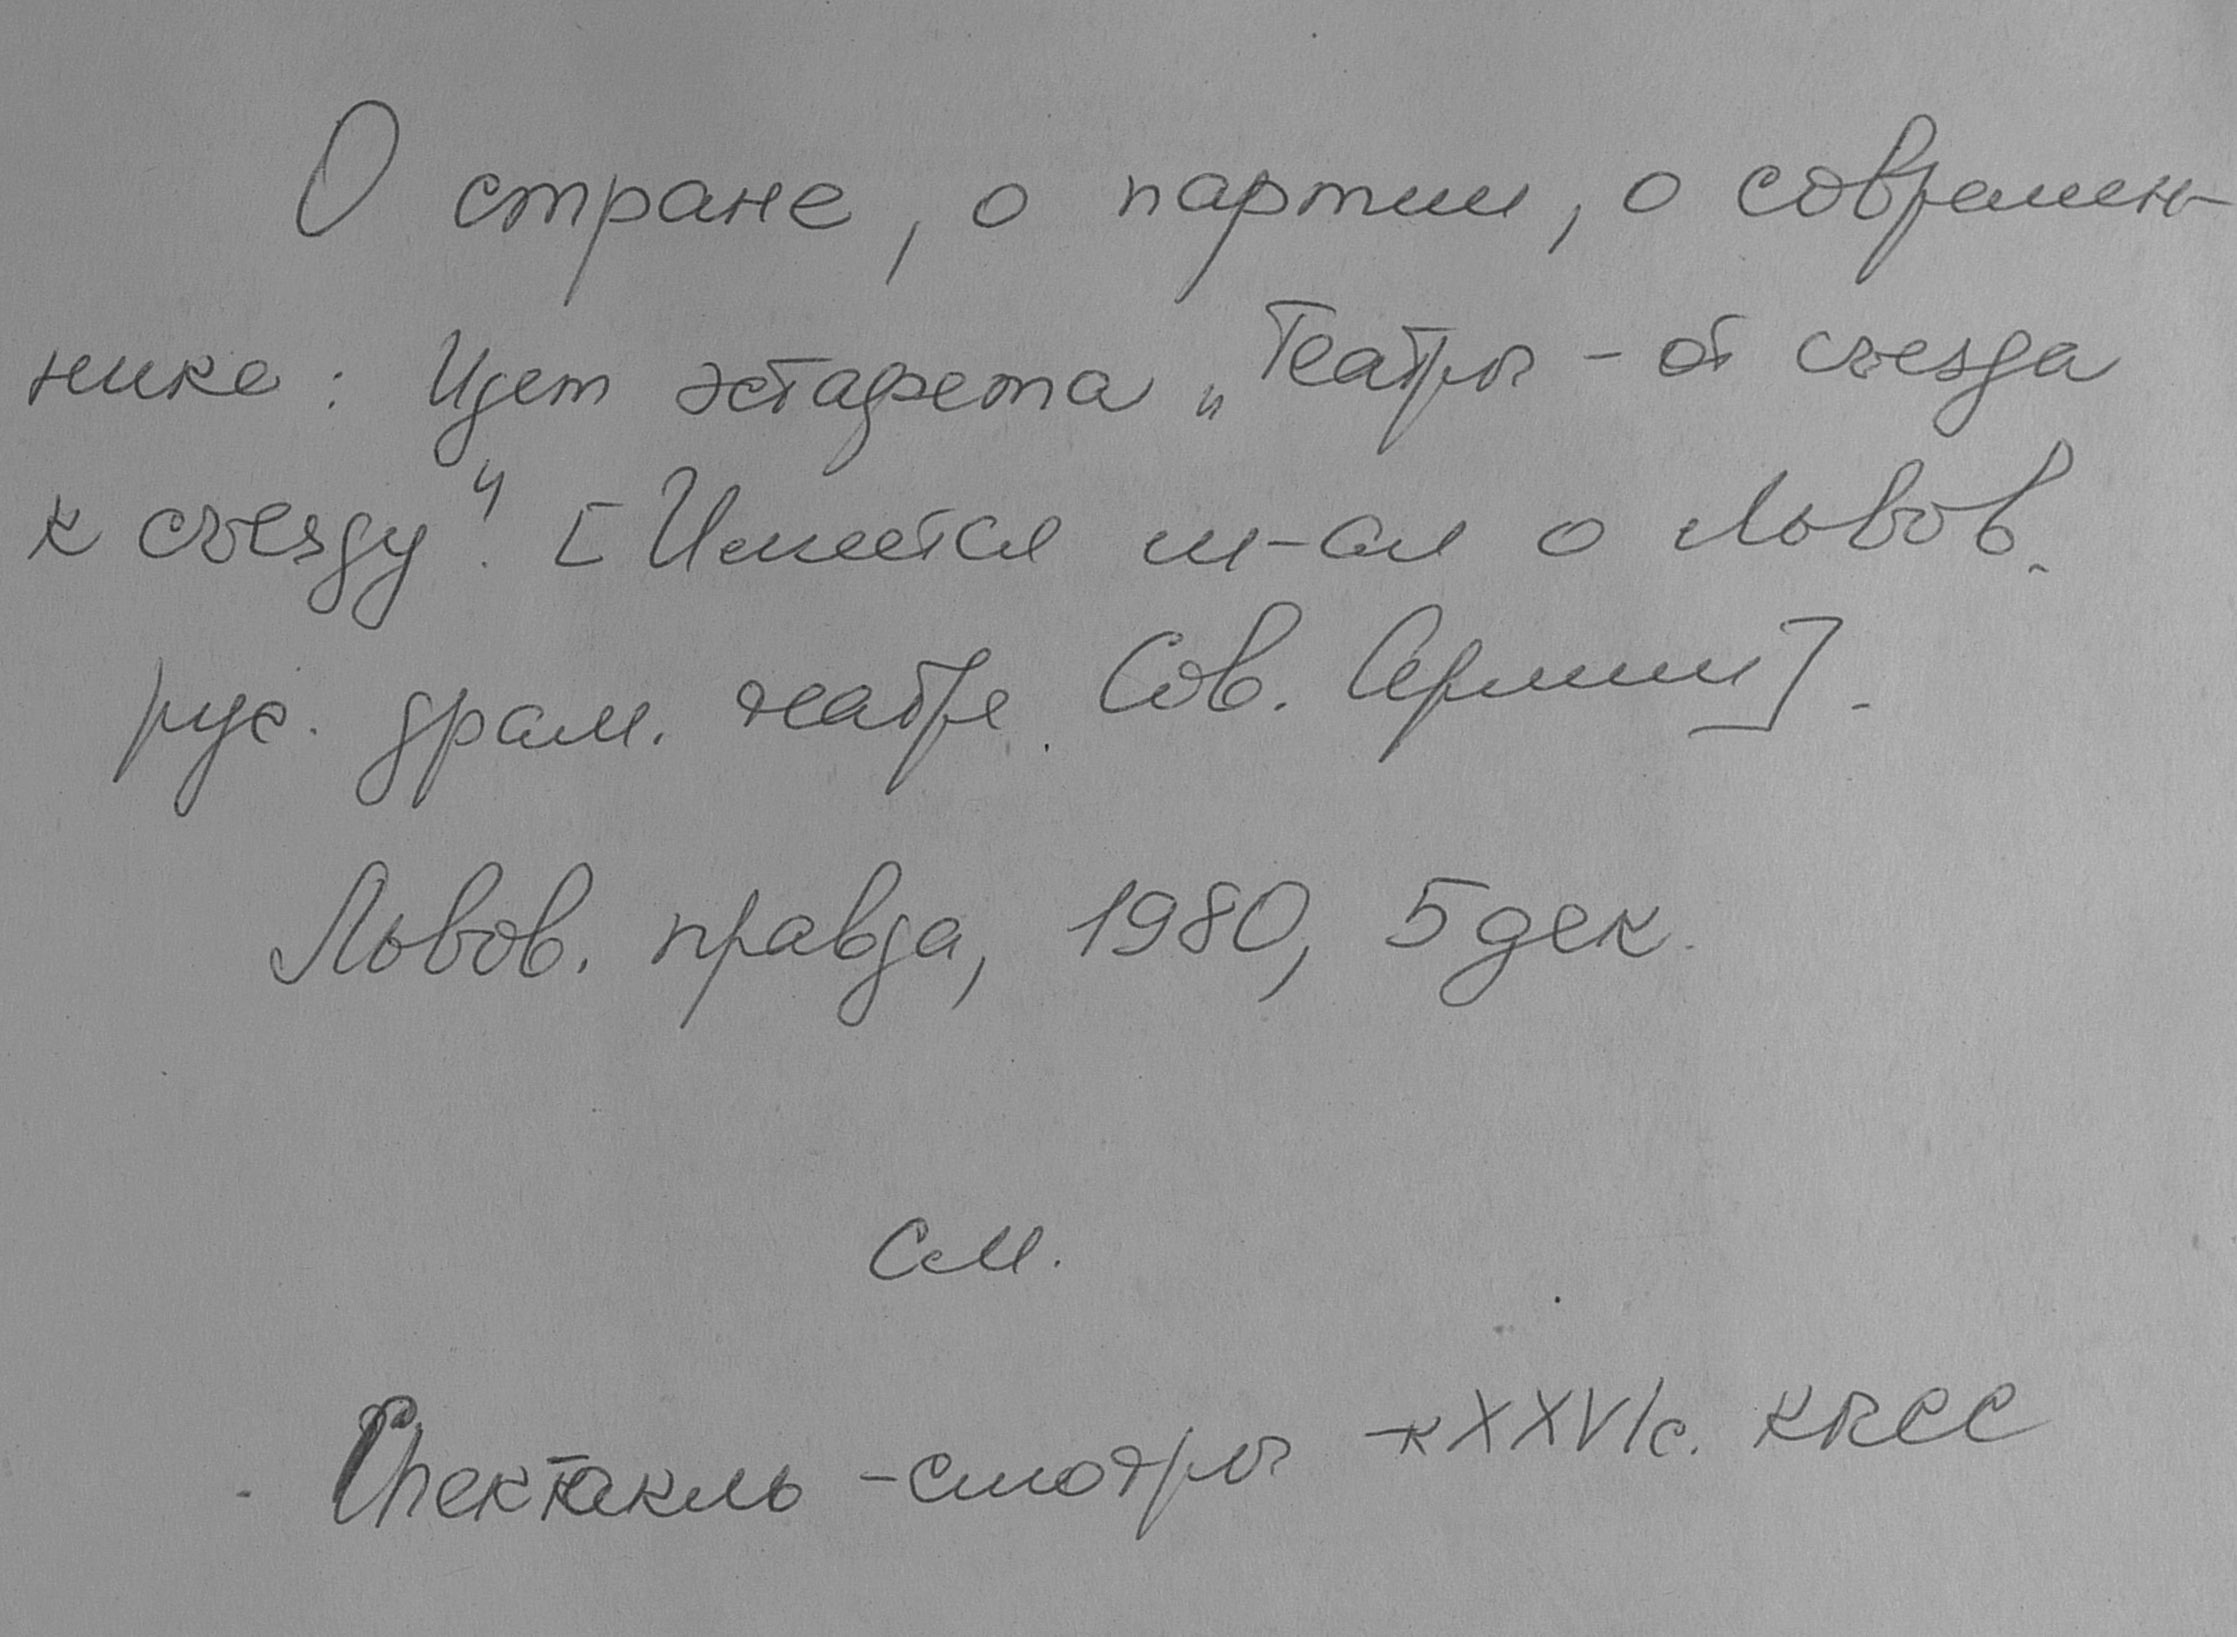 О стране, о партии, о современ-
нике: Идет эстафета „Театры - от съезда
к съезду". [Имеется м-ал о Львов.
рус. драм. театре Сов. Армии].
Львов. правда, 1980, 5 дек.
См.
Спектакль - смотры к XXVI с. КПСС